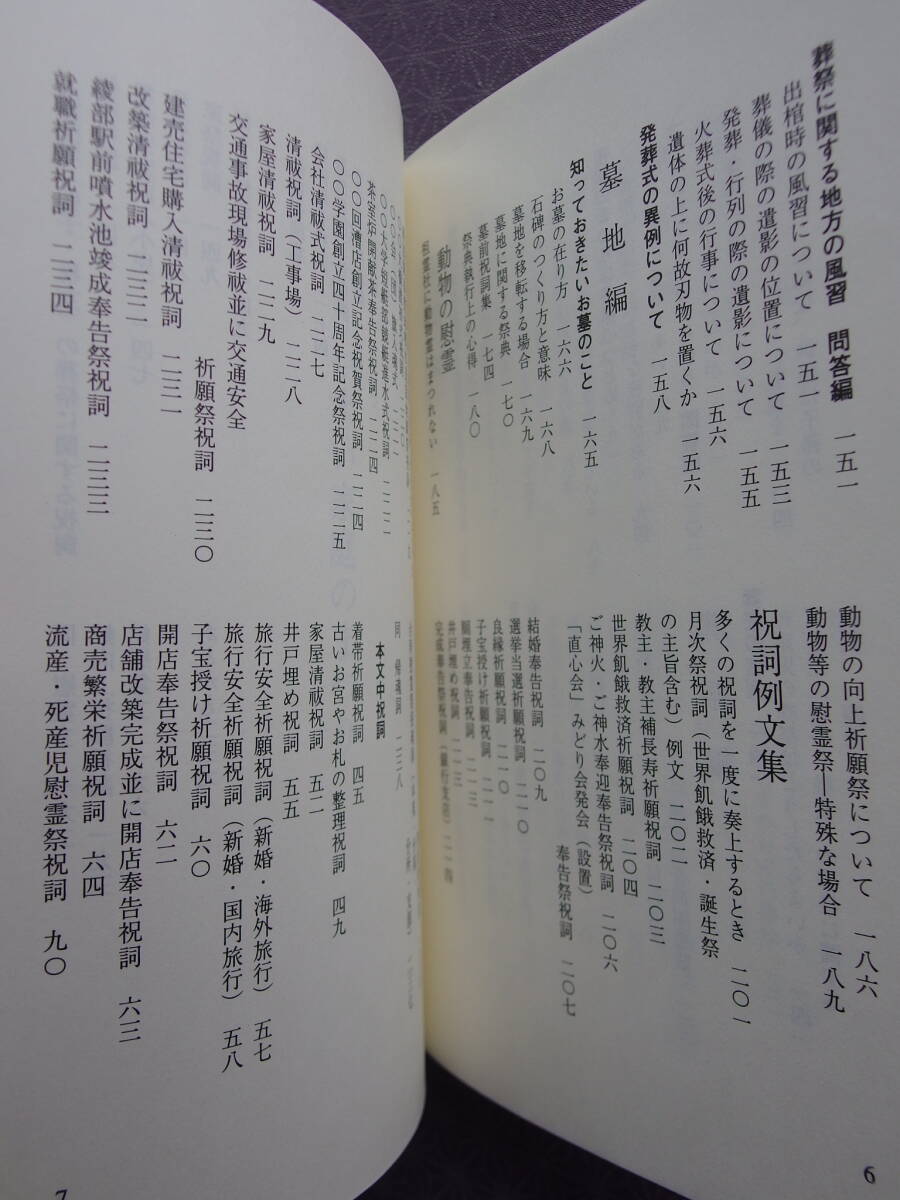 葬祭に関する地方の風習　問答編　一五一
出棺時の風習について　一五一
葬儀の際の遺影の位置について　一五三
発葬・行列の際の遺影について　一五五
火葬式後の行事について　一五六
遺体の上に何故刃物を置くか　一五六
発葬式の異例について　一五八
墓地編
知っておきたいお墓のこと　一六五
お墓の在り方　一六六
石碑のつくり方と意味　一六八
墓地を移転する場合　一六九
墓地に関する祭典　一七〇
墓前祝詞集　一七四
祭典執行上の心得　一八〇
動物の慰霊
祖霊社に動物霊はまつれない　一八五
動物の向上祈願祭について　一八六
動物等の慰霊祭―特殊な場合　一八九
祝詞例文集
多くの祝詞を一度に奏上するとき　二〇一
月次祭祝詞（世界飢餓救済・誕生祭
の主旨含む）例文　二〇二
教主・教主補長寿祈願祝詞　二〇三
世界飢餓救済祈願祝詞　二〇四
ご神火・ご神水奉迎奉告祭祝詞　二〇六
「直心会」みどり会発会（設置）
奉告祭祝詞　二〇七
結婚奉告祝詞　二〇九
選挙当選祈願祝詞　二一〇
良縁祈願祝詞　二一〇
子宝授け祈願祝詞　二一一
願埋立奉告祝詞
井戸埋め祝詞　二一三
完成奉告祭祝詞（銀行支店）二一四
6
〇〇大学短艇部競艇進水式祝詞　二二二
茶室炉開献茶奉告祭祝詞　二二四
〇〇回漕店創立記念祝賀祭祝詞　二二四
〇〇学園創立四十周年記念祭祝詞　二二五
会社清祓式祝詞　二二七
清祓祝詞（工事場）　二二八
家屋清祓祝詞　二二九
交通事故現場修祓並に交通安全
祈願祭祝詞　二三〇
建売住宅購入清祓祝詞　二三一
改築清祓祝詞　二三二
綾部駅前噴水池竣成奉告祭祝詞　二三三
就職祈願祝詞　二三四
同　帰魂詞　二三八
本文中祝詞
着帯祈願祝詞　四五
古いお宮やお札の整理祝詞　四九
家屋清祓祝詞　五二
井戸埋め祝詞　五五
旅行安全祈願祝詞（新婚・海外旅行）　五七
旅行安全祈願祝詞（新婚・国内旅行）　五八
子宝授け祈願祝詞　六〇
開店奉告祭祝詞　六二
店舗改築完成並に開店奉告祝詞　六三
商売繁栄祈願祝詞　六四
流産・死産児慰霊祭祝詞　九〇
7